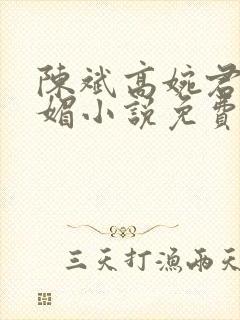 陳斌高婉君
媚小說免費
三天打漁兩天